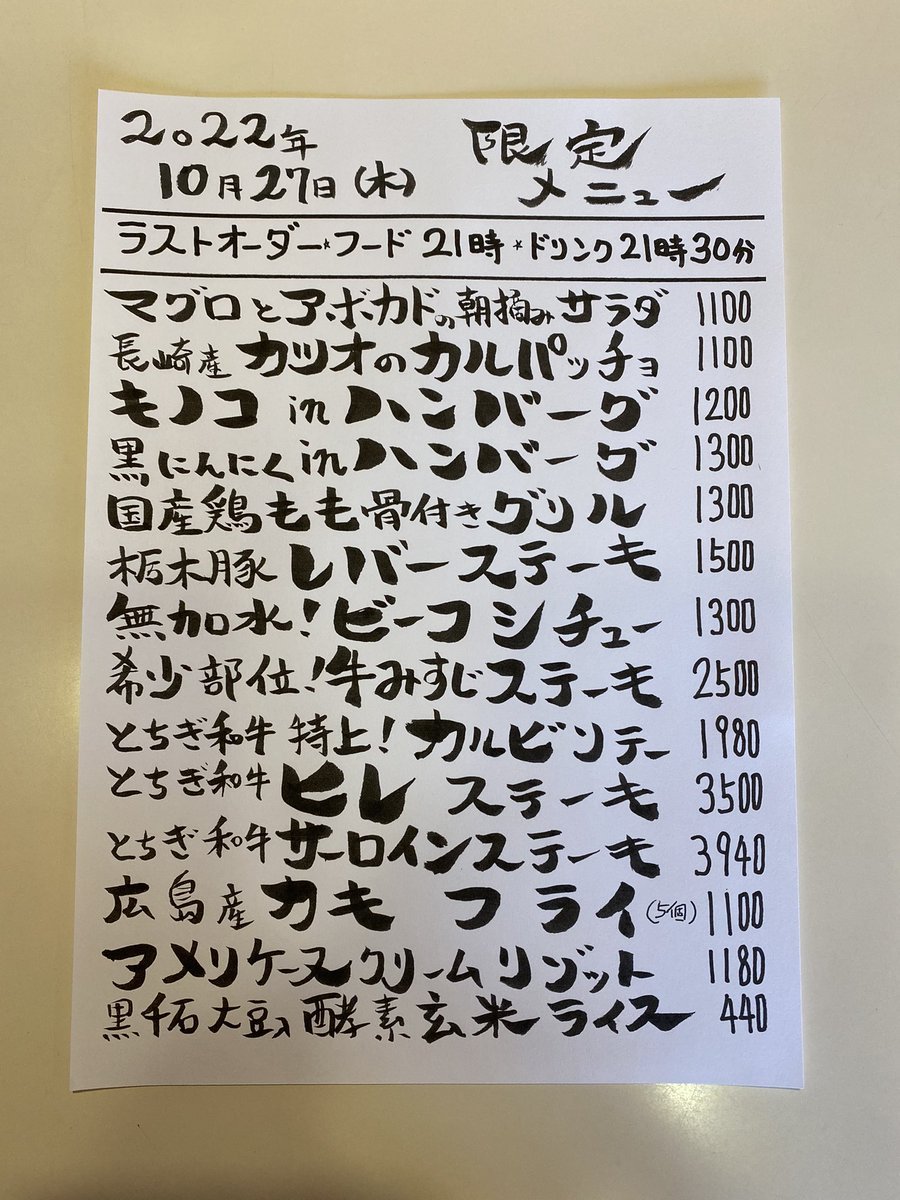 2022年
10月27日(木)
限定
メニュー
ラストオーダー*フード21時*ドリンク21時30分
マグロとアボカドの朝摘みサラダ 1100
長崎産カツオのカルパッチョ 1100
キノコinハンバーグ 1200
黒にんにくinハンバーグ 1300
国産鶏もも骨付きグリル 1300
栃木豚レバーステーキ 1500
無加水!ビーフシチュー 1300
希少部位!牛みすじステーキ 2500
とちぎ和牛特上!カルビソテー 1980
とちぎ和牛ヒレステーキ 3500
とちぎ和牛サーロインステーキ 3940
広島産カキフライ(5個) 1100
アメリケーヌクリームリゾット 1180
黒千石大豆入酵素玄米ライス 440